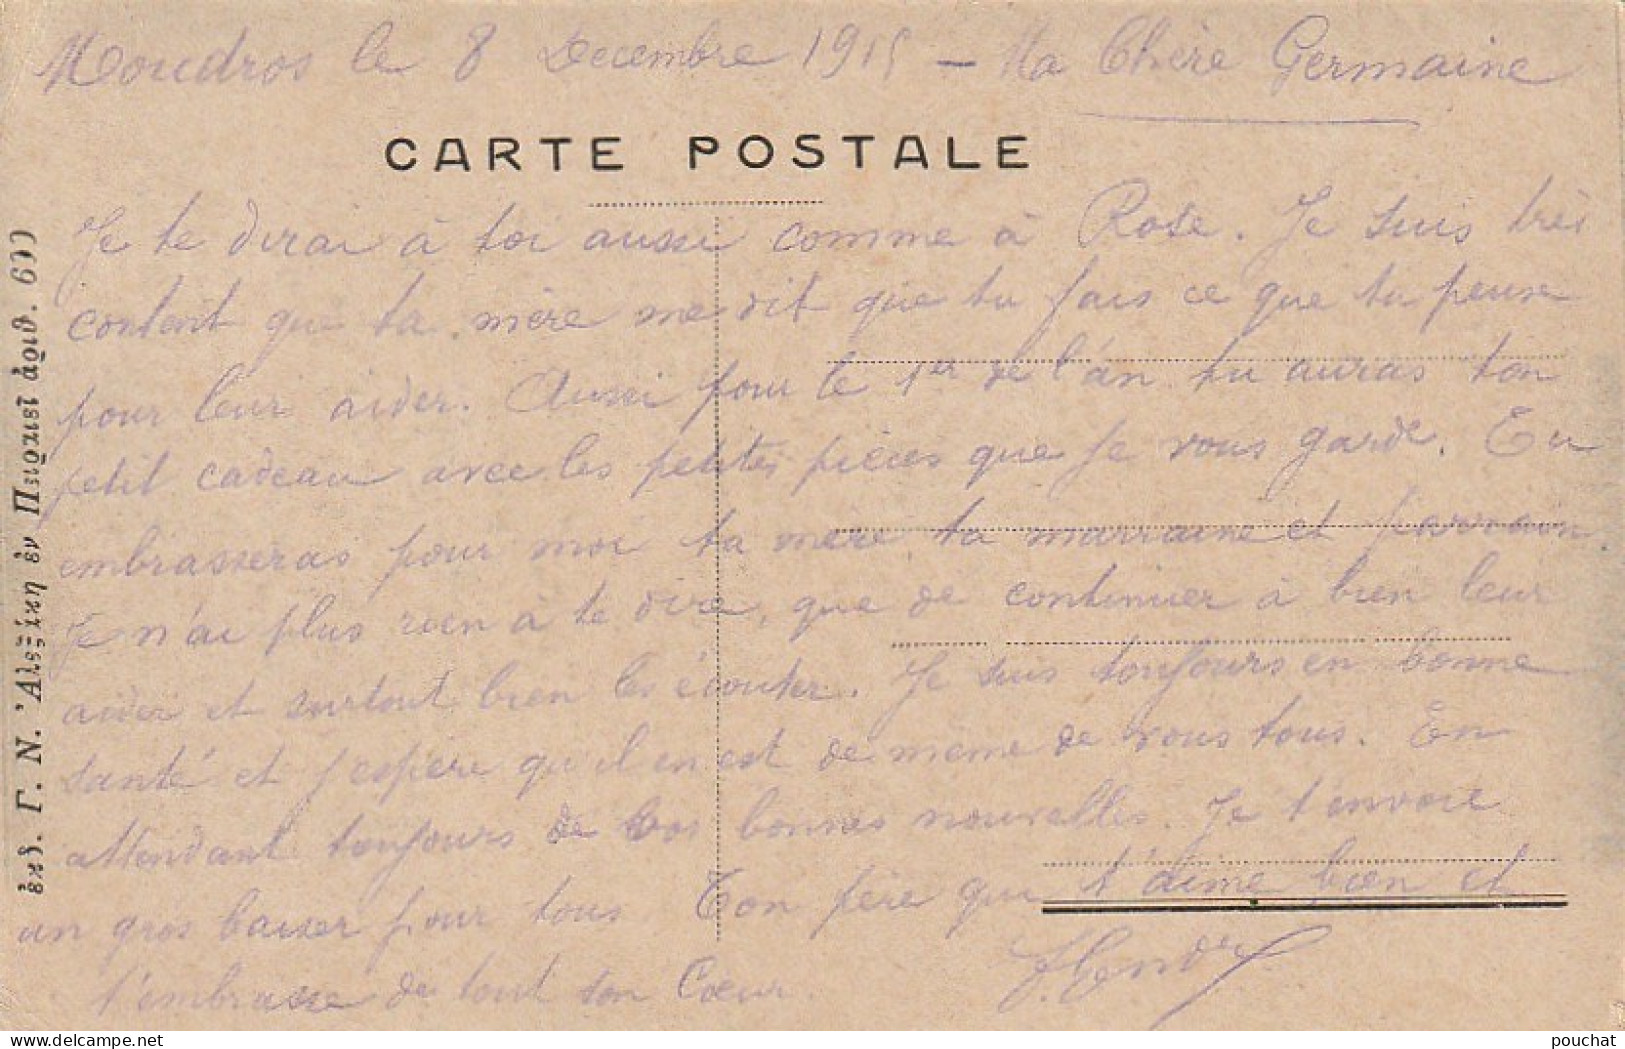 Moudros le 8 Decembre 1915 – Ma Chère Germaine
CARTE POSTALE
Je te dirai à toi aussi comme à Rose. Je suis très
content que ta mère me dit que tu fais ce que tu peuse
pour leur aider. Aussi pour le 1er de l'an tu auras ton
petit cadeau avec les petites pièces que je vous garde. Tu
embrasseras pour moi ta mère, ta marraine et parrain.
Je n'ai plus rien à te dire, que de continuer à bien leur
aider et surtout bien les écouter. Je suis toujours en bonne
santé et j'espère qu'il en est de même de vous tous. En
attendant toujours de vos bonnes nouvelles. Je t'envoie
un gros baiser pour tous. Ton père qui t'aime bien et
t'embrasse de tout son Cœur.
ἐκδ. Γ. Ν. Ἀλεξίκη ἐν Πειραιεῖ ἀριθ. 69))
pouchat
delcampe.net